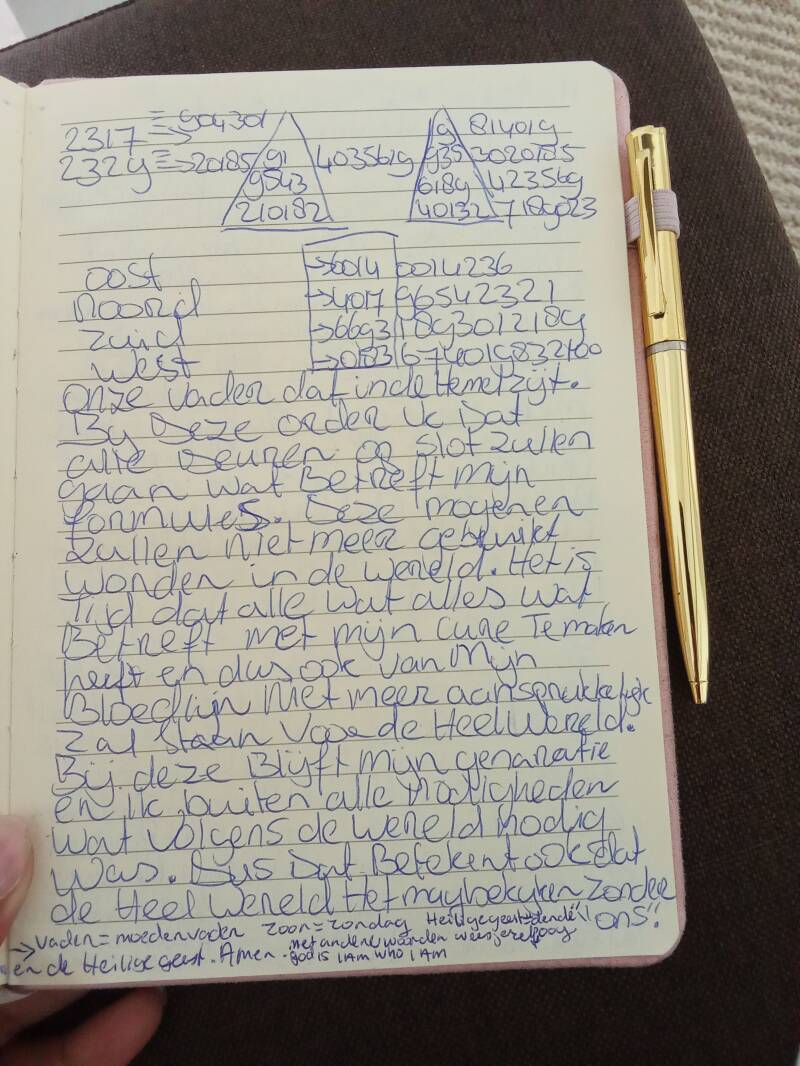 2317 => 904301
2329 => 20185
91
9543
210182
4035619
9 814019
935 3020185
6189 423569
40132 7189023
oost →6014 0014236
noord →4017 96542321
zuid →6693 1893012189
west →0183 674019832100
onze vader dat in de Hemel zijt.
By Deze order ik Dat
alle Deuren op slot zullen
gaan wat Betreft mijn
formules. Deze mogen en
zullen niet meer gebruikt
worden in de wereld. Het is
Tijd dat alle wat alles wat
Betreft met mijn cure Te maken
heeft en dus ook van Mijn
Bloedlijn Niet meer aansprukkelijk
zal staan voor de Heel Wereld.
Bij deze Blijft mijn genaratie
en ik buiten alle Nodigheden
wat volgens de wereld nodig
was. Dus Dat Betekent ook dat
de Heel Wereld Het mag bekyken zonder
"ons"!
→ Vader = moedervader zoon = zondag Heilige geest =
en de Heilige geest. Amen. met andere woorden
God is I Am who I Am